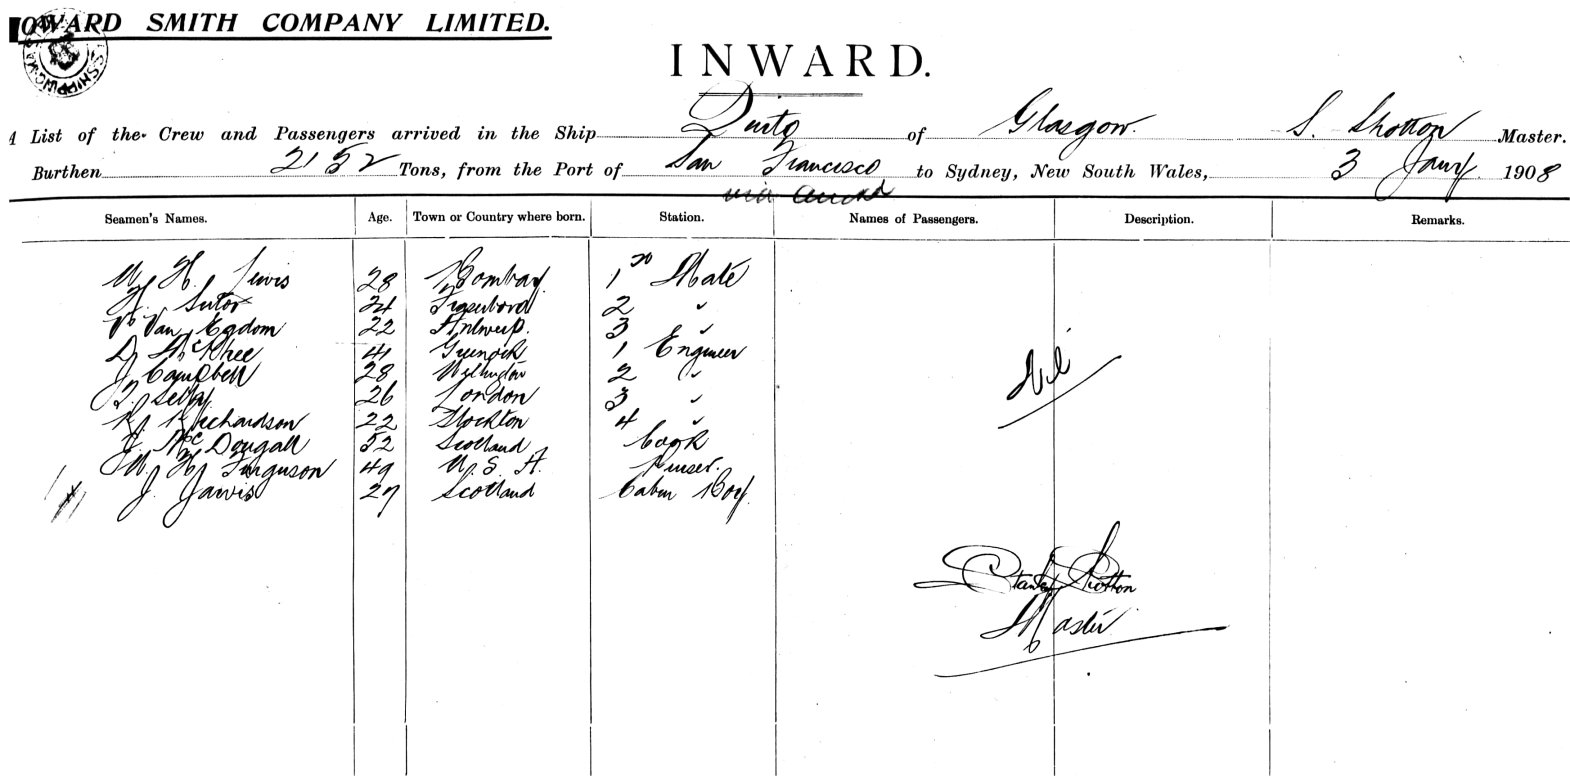 OWARD SMITH COMPANY LIMITED.
INWARD.
A List of the Crew and Passengers arrived in the Ship Quito of Glasgow. S. Shotton Master.
Burthen 2152 Tons, from the Port of San Francisco to Sydney, New South Wales, 3 Jany 1908
via
Seamen's Names. Age. Town or Country where born. Station. Names of Passengers. Description. Remarks.
W. H. Lewis 28 Bombay 1st Mate
H. Sutor 24 2 "
V. Van Egdom 22 Antwerp. 3 "
D. McPhee 41 Greenock 1 Engineer
J. Campbell 28 Wellington 2 "
26 London 3 "
R. Richardson 22 Stockton 4 "
J. McDougall 52 Scotland Cook
W. H. Ferguson 49 U.S.A. Purser.
J. Jarvis 27 Scotland Cabin Boy.
Nil
Stanley Shotton
Master